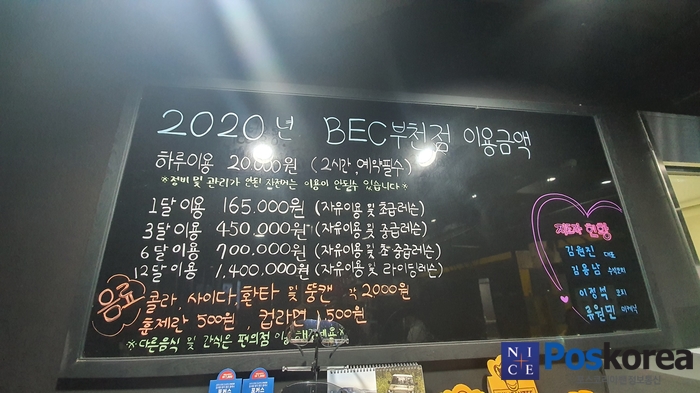 2020년 BEC부천점 이용금액
하루이용 20.000원 (2시간, 예약필수)
※정비 및 관리가 안된 자전거는 이용이 안될수 있습니다※
1달이용 165.000원 (자유이용 및 초급레슨)
3달이용 450.000원 (자유이용 및 중급레슨)
6달이용 700.000원 (자유이용 및 초 중급레슨)
12달이용 1,400.000원 (자유이용 및 라이딩레슨)
음료 콜라 사이다 환타 및 뚱캔 각 2000원
훈제란 500원, 컵라면 1,500원
※다른음식 및 간식은 편의점
지도자 현황
김현진 대표
김용남
이정석 코치
류원민
NICE Poskorea